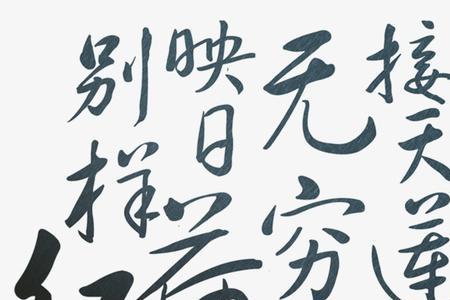 接天莲
无穷
映日荷
别样红